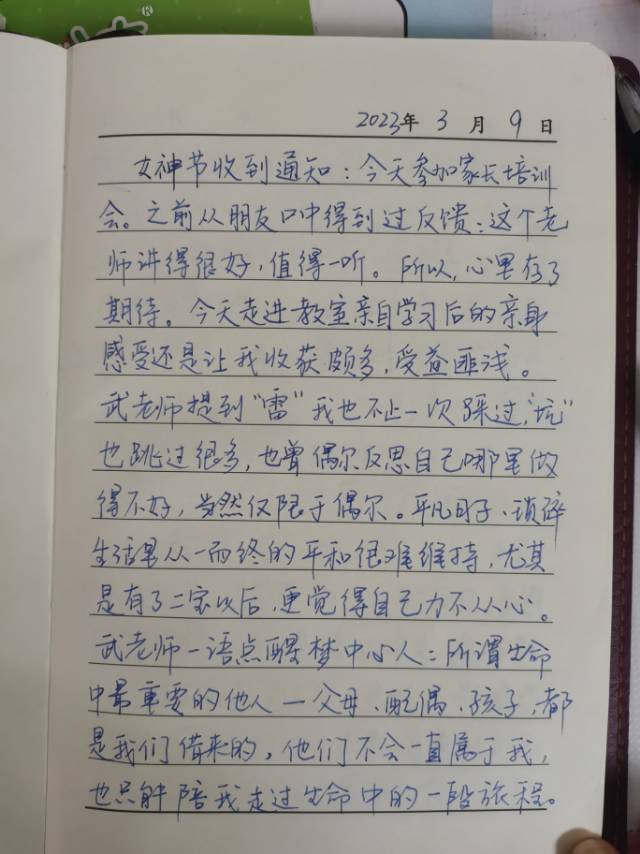 2023年 3 月 9 日
女神节收到通知：今天参加家长培训
会。之前从朋友口中得到过反馈：这个老
师讲得很好，值得一听。所以，心里存了
期待。今天走进教室亲自学习后的亲身
感受还是让我收获颇多，受益匪浅。
武老师提到“雷”我也不止一次踩过，“坑”
也跳过很多，也曾偶尔反思自己哪里做
得不好，当然仅限于偶尔。平凡日子、琐碎
生活里从一而终的平和很难维持，尤其
是有了二宝以后，更觉得自己力不从心。
武老师一语点醒梦中心人：所谓生命
中最重要的他人—父母、配偶、孩子，都
是我们借来的，他们不会一直属于我，
也只能陪我走过生命中的一段旅程。